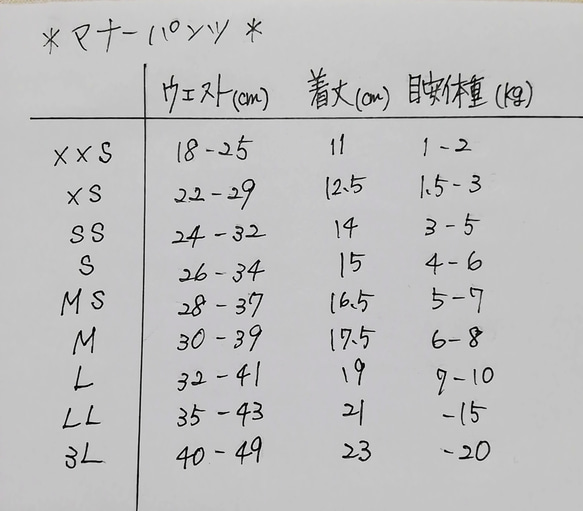 *マナーパンツ*
ウェスト(cm) 着丈(cm) 目安体重(kg)
XXS 18-25 11 1-2
XS 22-29 12.5 1.5-3
SS 24-32 14 3-5
S 26-34 15 4-6
MS 28-37 16.5 5-7
M 30-39 17.5 6-8
L 32-41 19 7-10
LL 35-43 21 -15
3L 40-49 23 -20